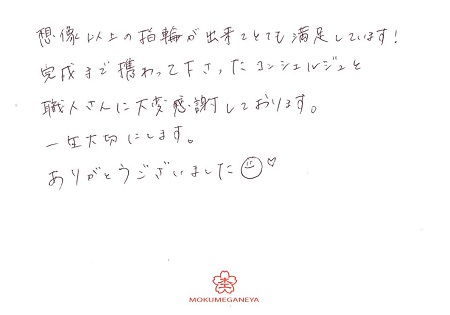 想像以上の指輪が出来てとても満足しています!
完成まで携わって下さったコンシェルジュと
職人さんに大変感謝しております。
一生大切にします。
ありがとうございました
MOKUMEGANEYA